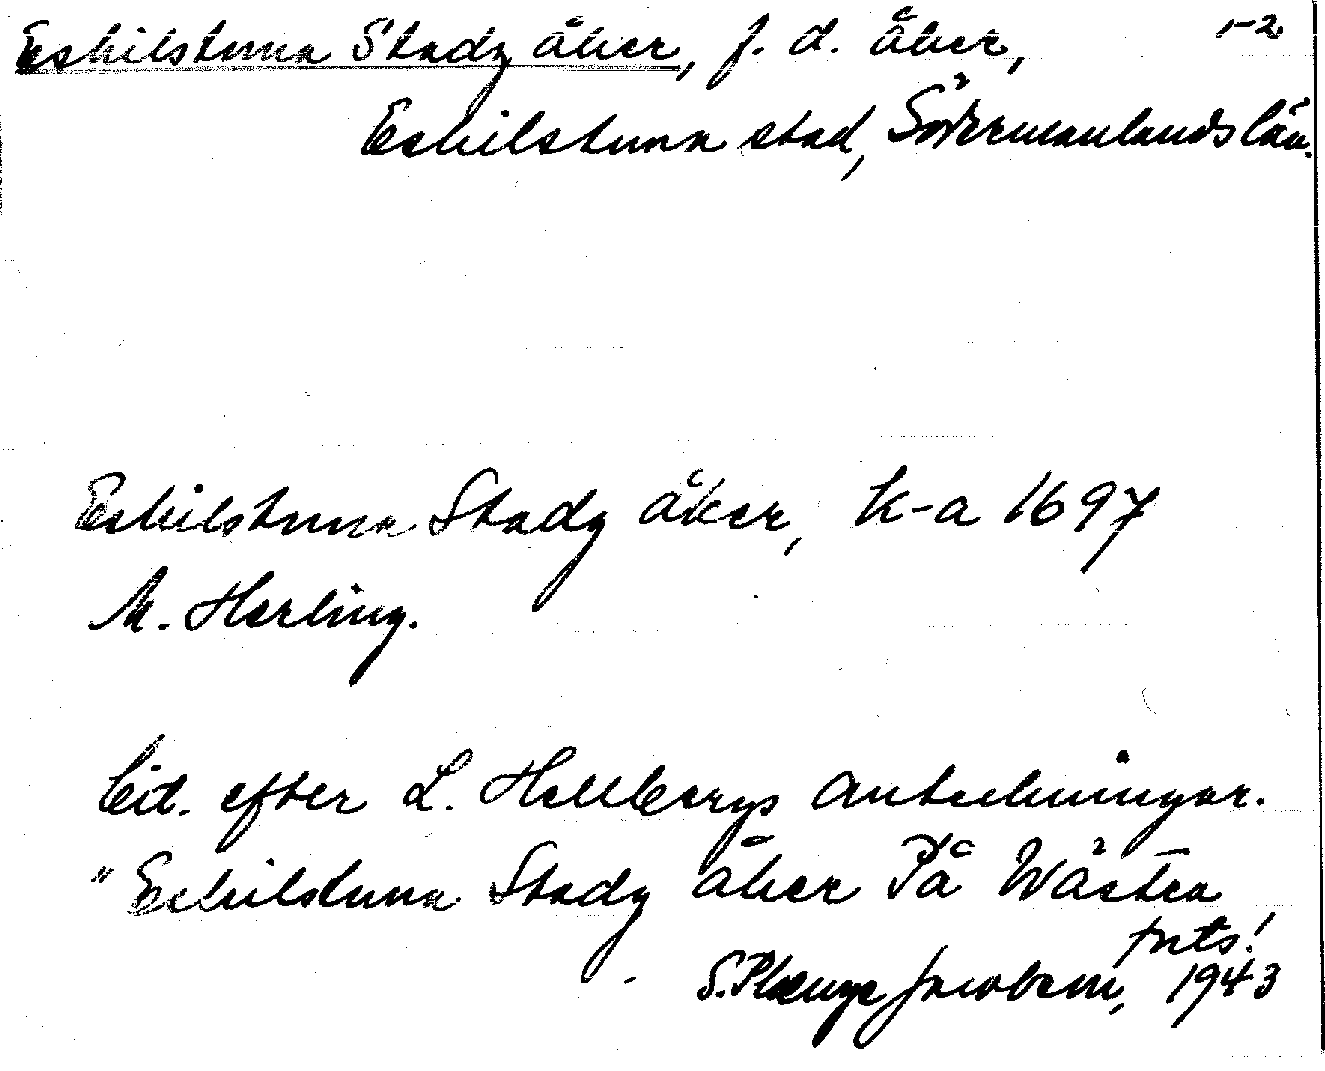 Eskilstuna Stadz åker, f. d. åker, 1-2
Eskilstuna stad, Södermanlands län.
Eskilstuna Stadz åker, k-a 1697
M. Herling.
Cit. efter L. Hellbergs anteckningar.
"Eskilstuna Stadz åker På Wästra
forts!
S. Jacobson, 1943